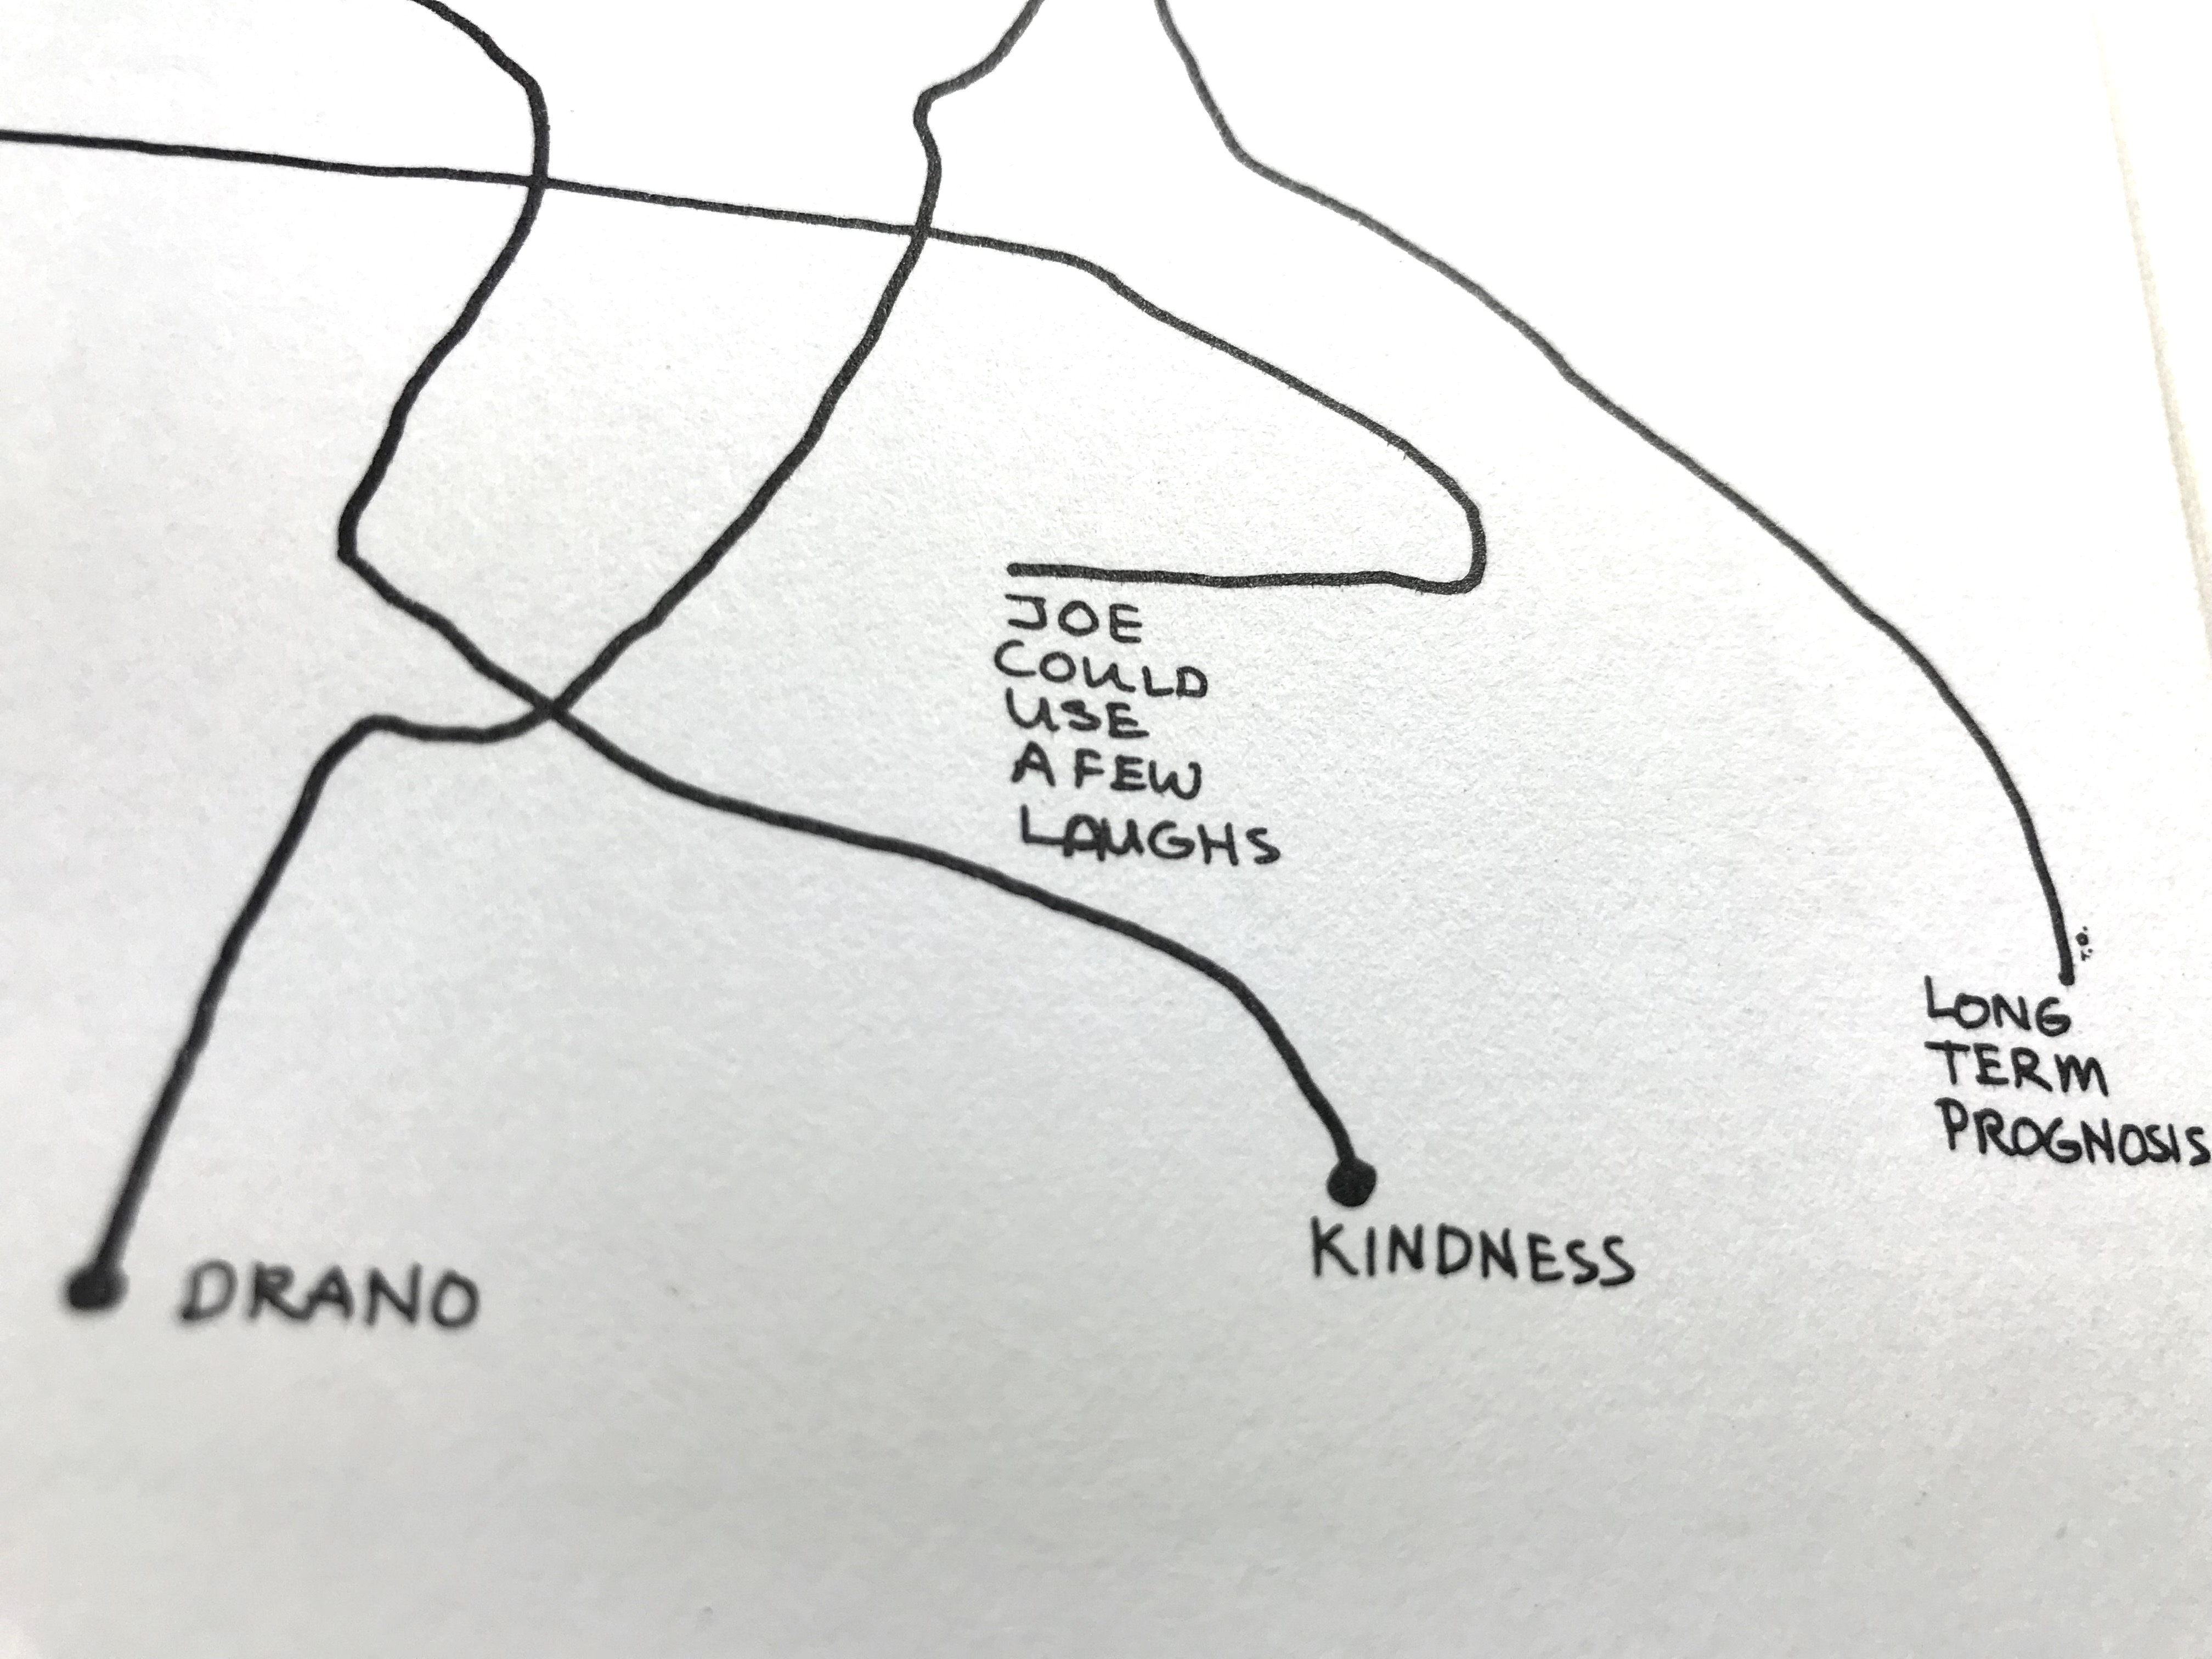 JOE
COULD
USE
A FEW
LAUGHS
LONG
TERM
PROGNOSIS
KINDNESS
DRANO